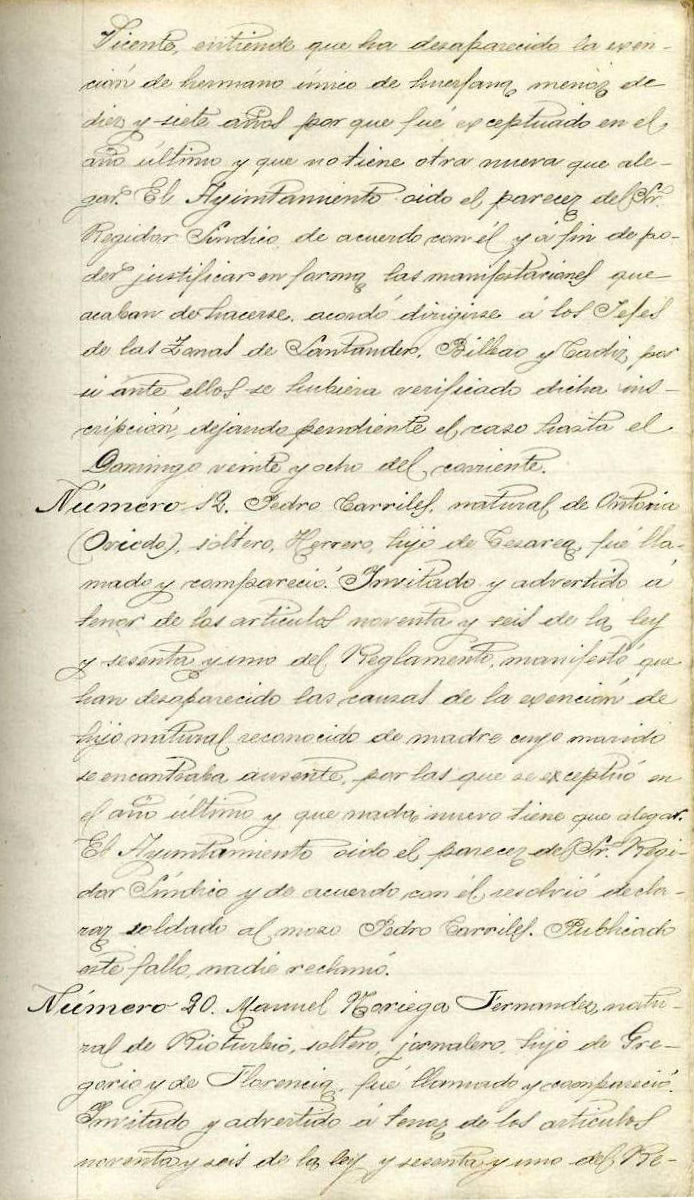 Vicente, entiende que ha desaparecido la exen-
ción de hermano único de huerfano menor de
diez y siete años por que fué exceptuado en el
año último y que no tiene otra nueva que ale-
gar. El Ayuntamiento oido el parecer del Sr.
Regidor Síndico, de acuerdo con él y á fin de po-
der justificar en forma las manifestaciones que
acaban de hacerse, acordó dirigirse á los Jefes
de las Zonas de Santander, Bilbao y Cadiz, por
si ante ellos se hubiera verificado dicha ins-
cripción, dejando pendiente el caso hasta el
Domingo veinte y ocho del corriente.
Número 12. Pedro Carriles, natural de Ontoria
(Oviedo), soltero, Herrero, hijo de Cesarea, fué lla-
mado y compareció. Invitado y advertido á
tenor de los articulos noventa y seis de la ley
y sesenta y uno del Reglamento, manifestó que
han desaparecido las causas de la exención de
hijo natural reconocido de madre cuyo marido
se encontraba ausente, por las que se exceptuó en
el año último y que nada nuevo tiene que alegar.
El Ayuntamiento oido el parecer del Sr. Regi-
dor Síndico y de acuerdo con él resolvió decla-
rar soldado al mozo Pedro Carriles. Publicado
este fallo, nadie reclamó.
Número 20. Manuel Noriega Fernandez, natu-
ral de Rioturbio, soltero, jornalero, hijo de Gre-
gorio y de Florencia, fué llamado y compareció.
Invitado y advertido á tenor de los articulos
noventa y seis de la ley y sesenta y uno del Re-